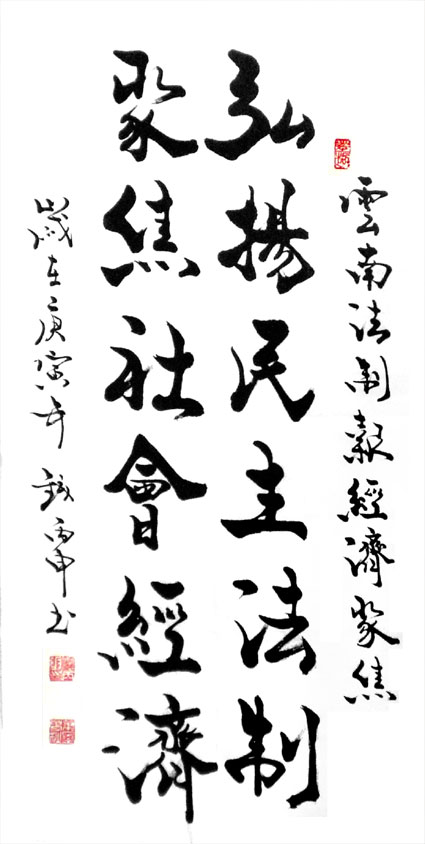 雲南法制報經濟聚焦
弘揚民主法制
聚焦社會經濟
歲在庚寅年 书